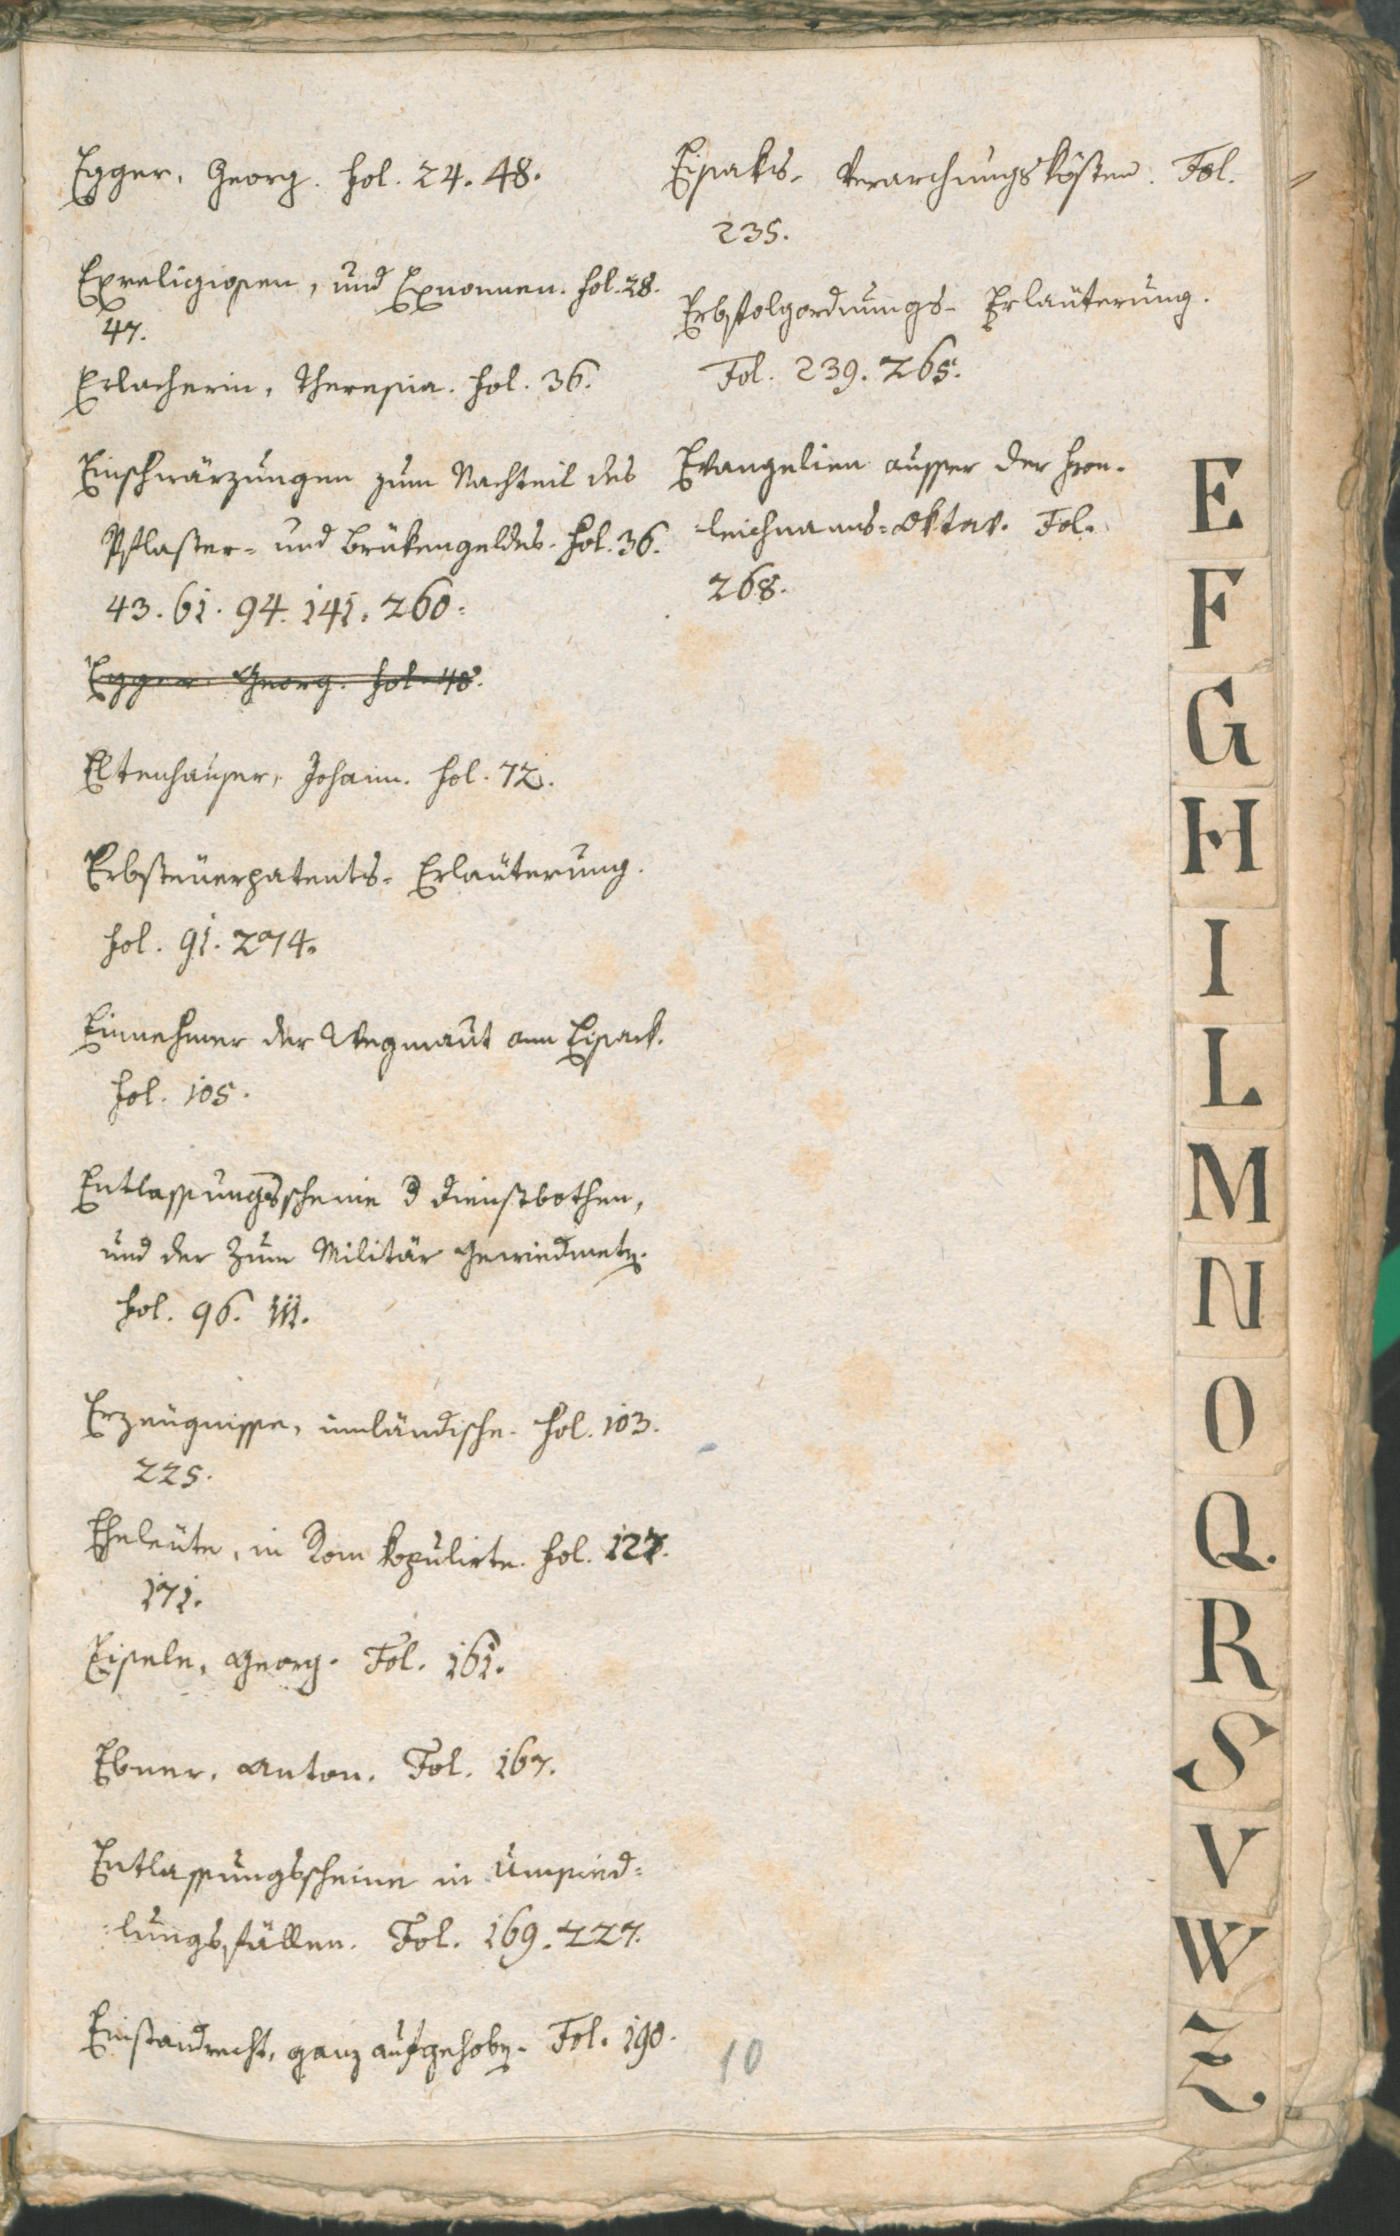 Egger, Georg. Fol. 24. 48.
Exreligiosen, und Exnonnen. Fol. 28.
47.
Erlacherin, Theresia. Fol. 36.
Einschwärzungen zum Nachteil des
Pflaster- und Brükengeldes. Fol. 36.
43. 61. 94. 141. 260.
Egger Georg. Fol. 48.
Eltenhauser, Johann. Fol. 72.
Erbsteuerpatents- Erlaüterung.
Fol. 91. 274.
Einnehmer der Wegmaut am Eisack.
Fol. 105.
Entlassungsscheine d Dienstbothen,
und der zum Militär Gewiedmetn.
Fol. 96. 111.
Erzeugnisse, innländische. Fol. 103.
225.
Eheleüte, in Rom kopulirte. Fol. 127.
171.
Eisele, Georg. Fol. 161.
Ebner, Anton. Fol. 167.
Entlassungsscheine in Umsied=
lungsfällen. Fol. 169. 227.
Einstandrecht, ganz aufgehobn. Fol. 190.
Eisaks- Verarchungskösten. Fol.
235.
Erbfolgordnungs- Erlaüterung.
Fol. 239. 265.
Evangelien ausser der Fron-
leichnams=Oktav. Fol.
268.
10
E
F
G
H
I
L
M
N
O
Q.
R
S
V
W
Z